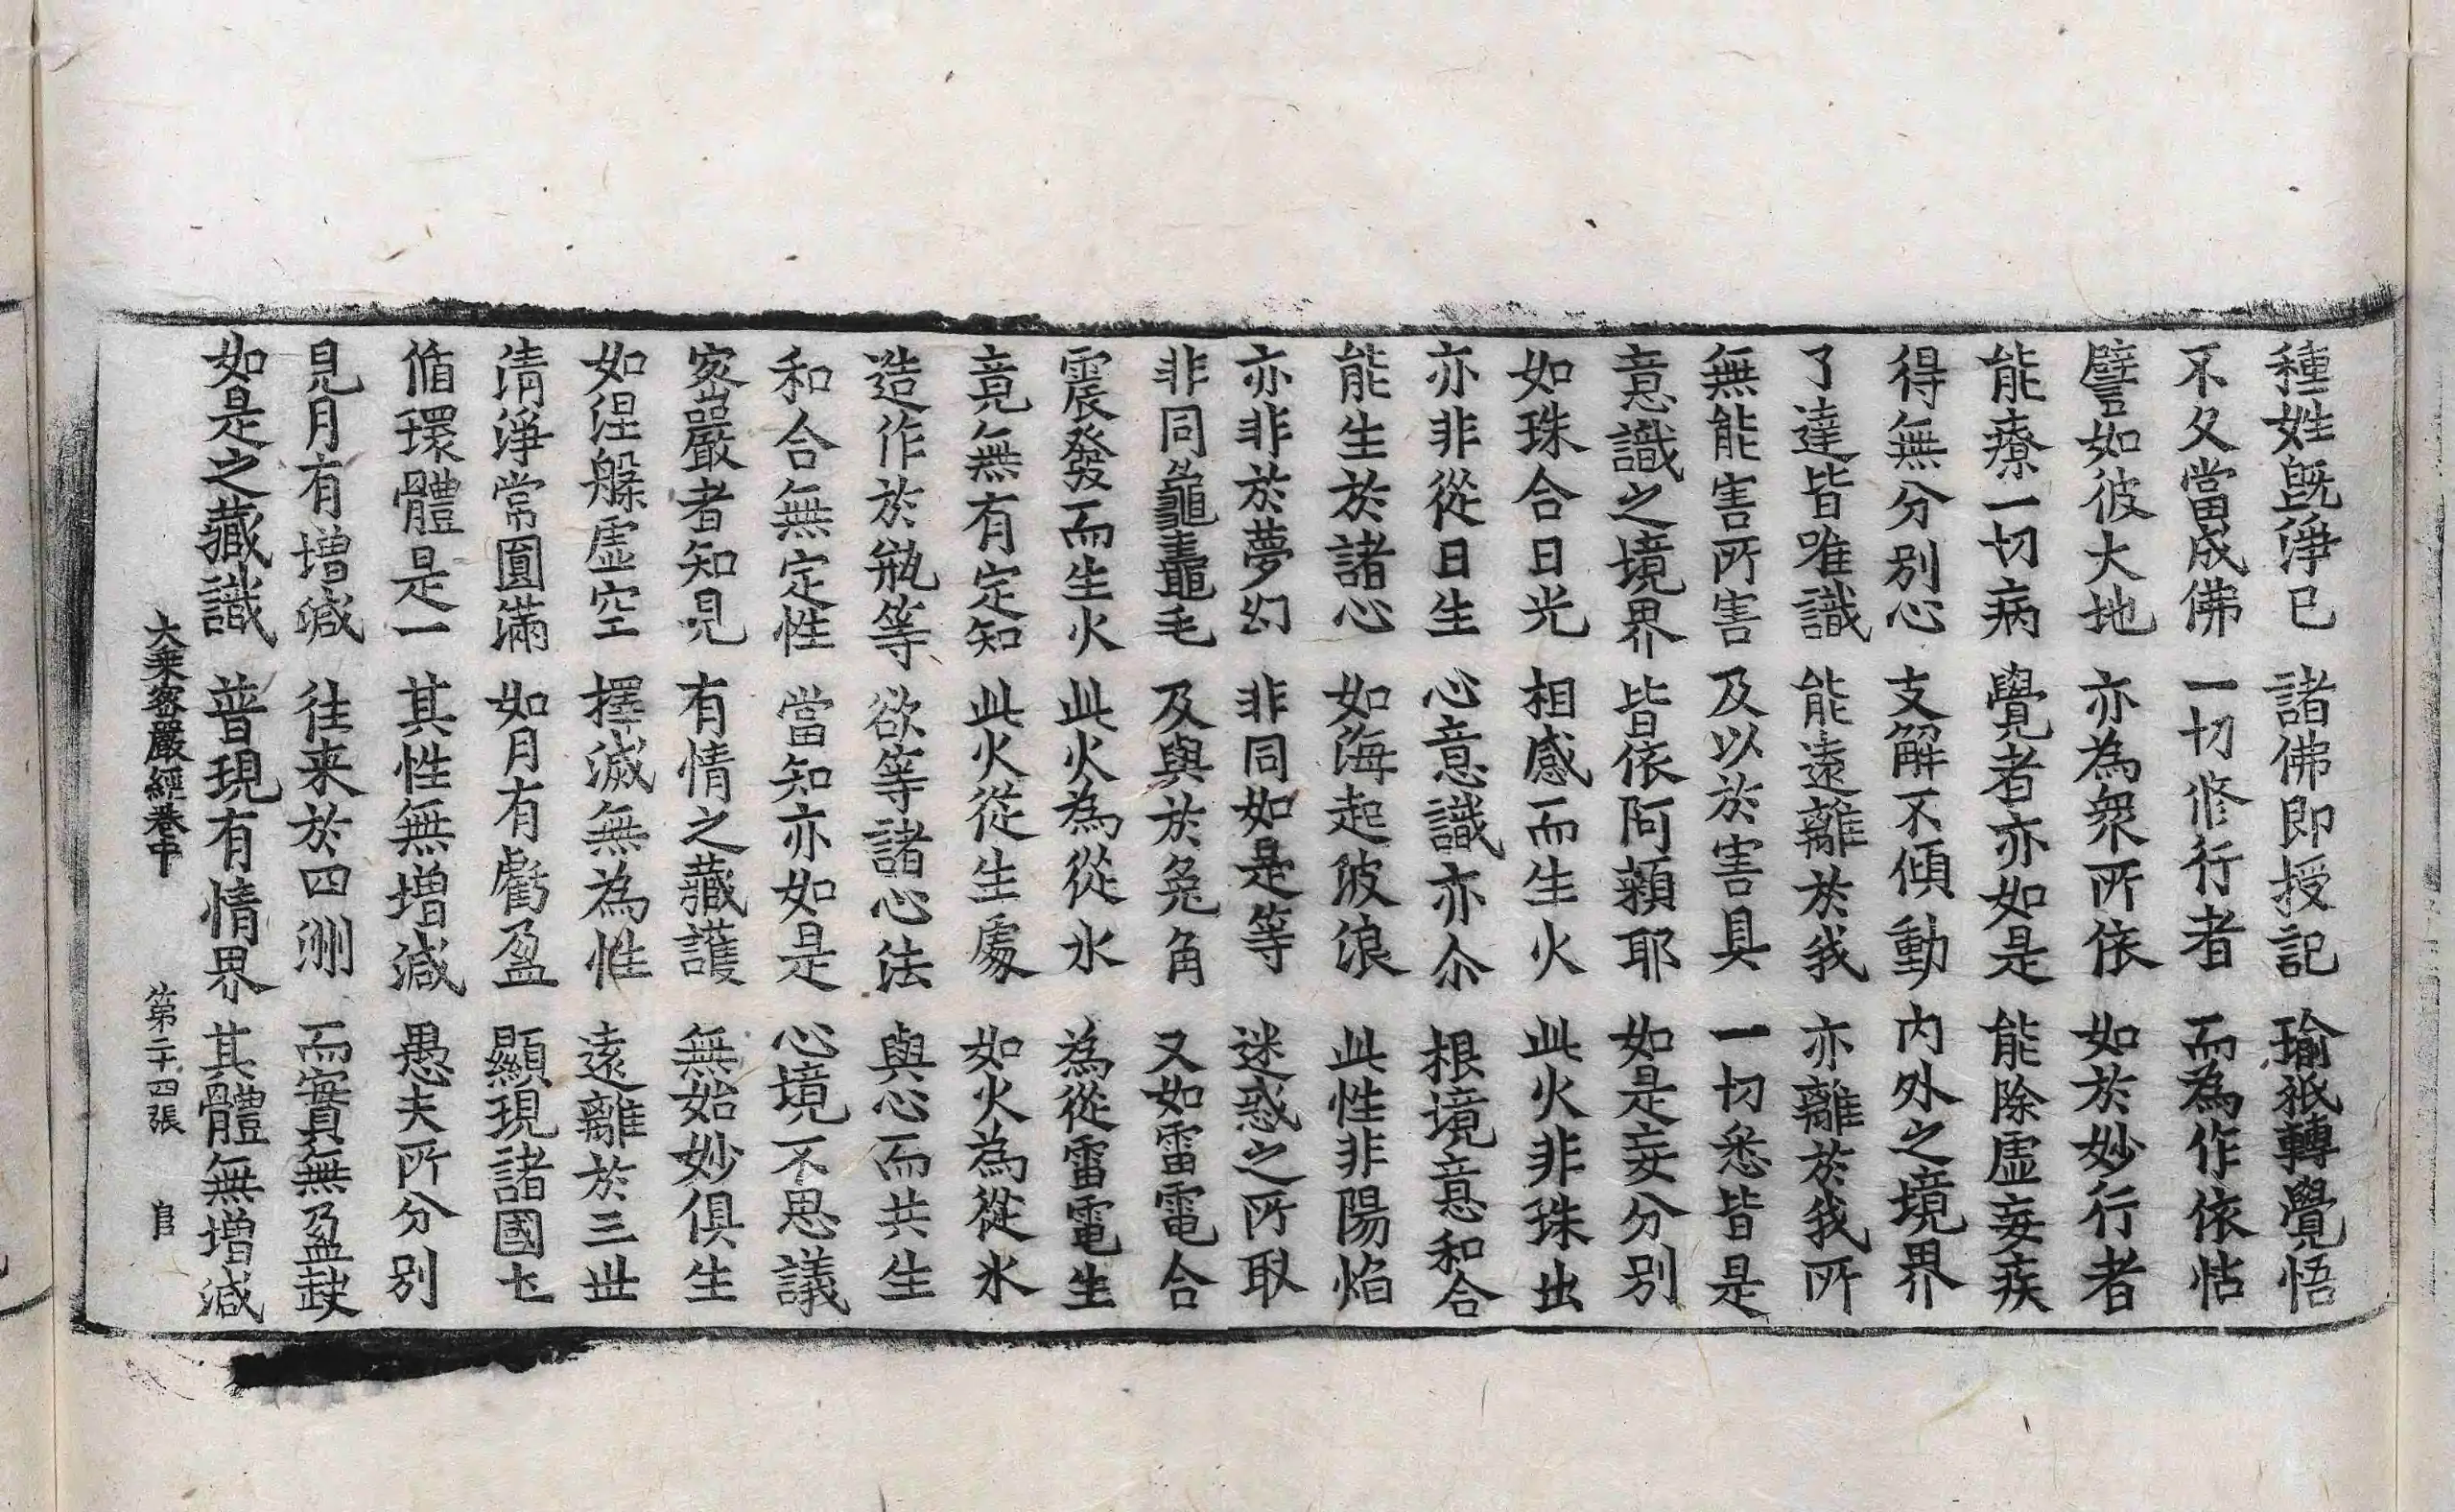 種姓既淨已 諸佛即授記 瑜祇轉覺悟
不久當成佛 一切修行者 而為作依怙
譬如彼大地 亦為衆所依 如於妙行者
能療一切病 覺者亦如是 能除虛妄疾
得無分別心 支解不傾動 內外之境界
了達皆唯識 能遠離於我 亦離於我所
無能害所害 及以於害具 一切悉皆是
意識之境界 皆依阿賴耶 如是妄分別
如珠合日光 相感而生火 此火非珠出
亦非從日生 心意識亦尒 根境意和合
能生於諸心 如海起波浪 此性非陽焰
亦非於夢幻 非同如是等 迷惑之所取
非同龜鼊毛 及與於兔角 又如雷電合
震發而生火 此火為從水 為從雷電生
竟無有定知 此火從生處 如火為從水
造作於瓶等 欲等諸心法 與心而共生
和合無定性 當知亦如是 心境不思議
密嚴者知見 有情之藏護 無始妙俱生
如涅槃虛空 擇滅無為性 遠離於三世
清淨常圓滿 如月有虧盈 顯現諸國土
循環體是一 其性無增減 愚夫所分別
見月有增減 往来於四洲 而實無盈缺
如是之藏識 普現有情界 其體無增減
大乘密嚴經卷中 第二十四張